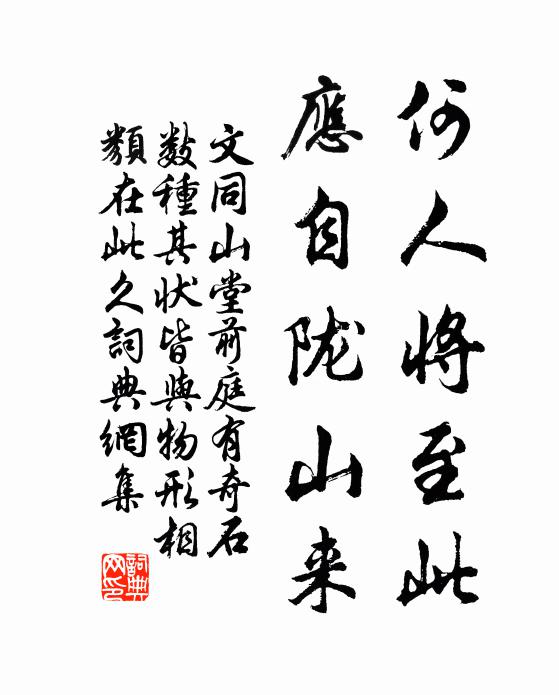 何人將至此
應自陇山来
文同山堂前庭有奇石
数種其状皆與物形相
類在此久詞典網集
詞典
网印